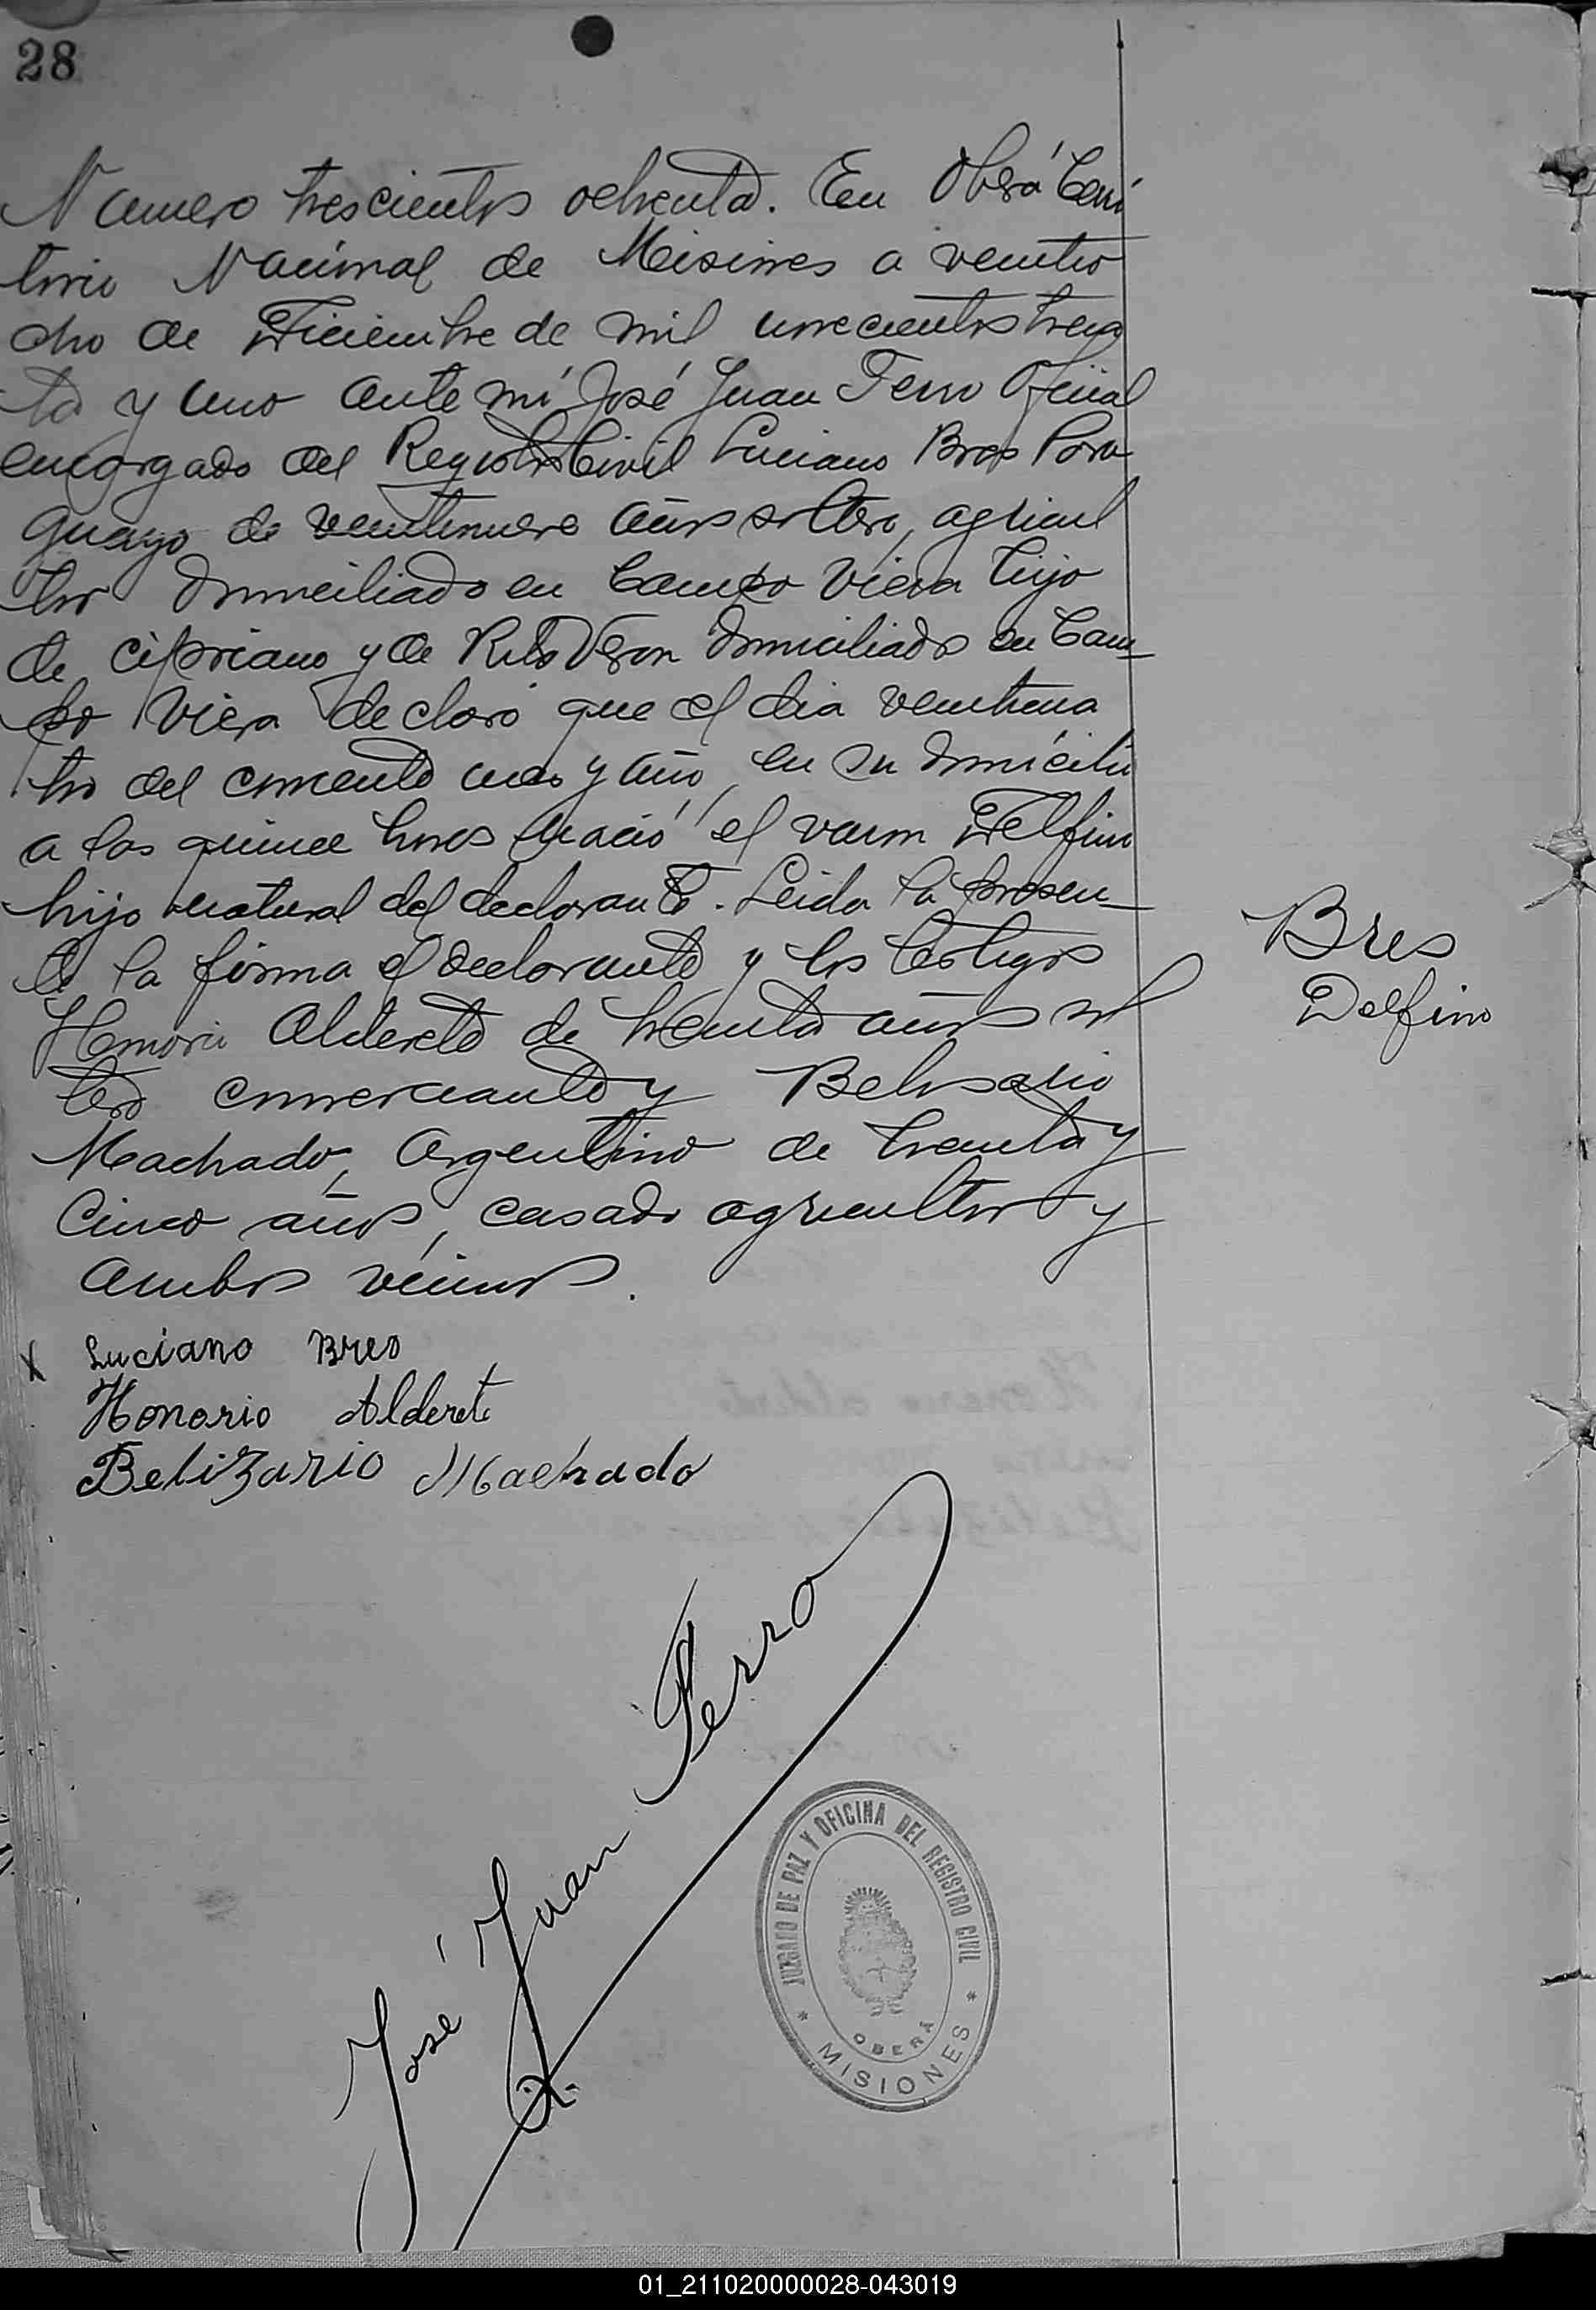 28
Numero trescientos ochenta. En Oberá Terri
torio Nacional de Misiones a veintio
cho de Diciembre de mil novecientos trein
ta y uno ante mí José Juan Ferro Oficial
encargado del Registro Civil Luciano Bres Para
guayo de veintinueve años soltero, agricul
tor domiciliado en Campo Viera hijo
de Cipriano y de Rita Veron domiciliado en Cam
po Viera declaró que el dia veinticua
tro del corriente mes y año, en su domicilio
a las quince horas nació el varon Delfino
hijo natural del declarante. Leida la presen
te la firma el declarante y los testigos
Honorio Alderete de treinta años sol
tero comerciante y Belisario
Machado, Argentino de treinta y
cinco años, casado agricultor y
ambos vecinos.
Bres
Delfino
x Luciano Bres
Honorio Alderete
Belizario Machado
José Juan Ferro
JUZGADO DE PAZ Y OFICINA DEL REGISTRO CIVIL
OBERÁ
* MISIONES *
01_211020000028-043019